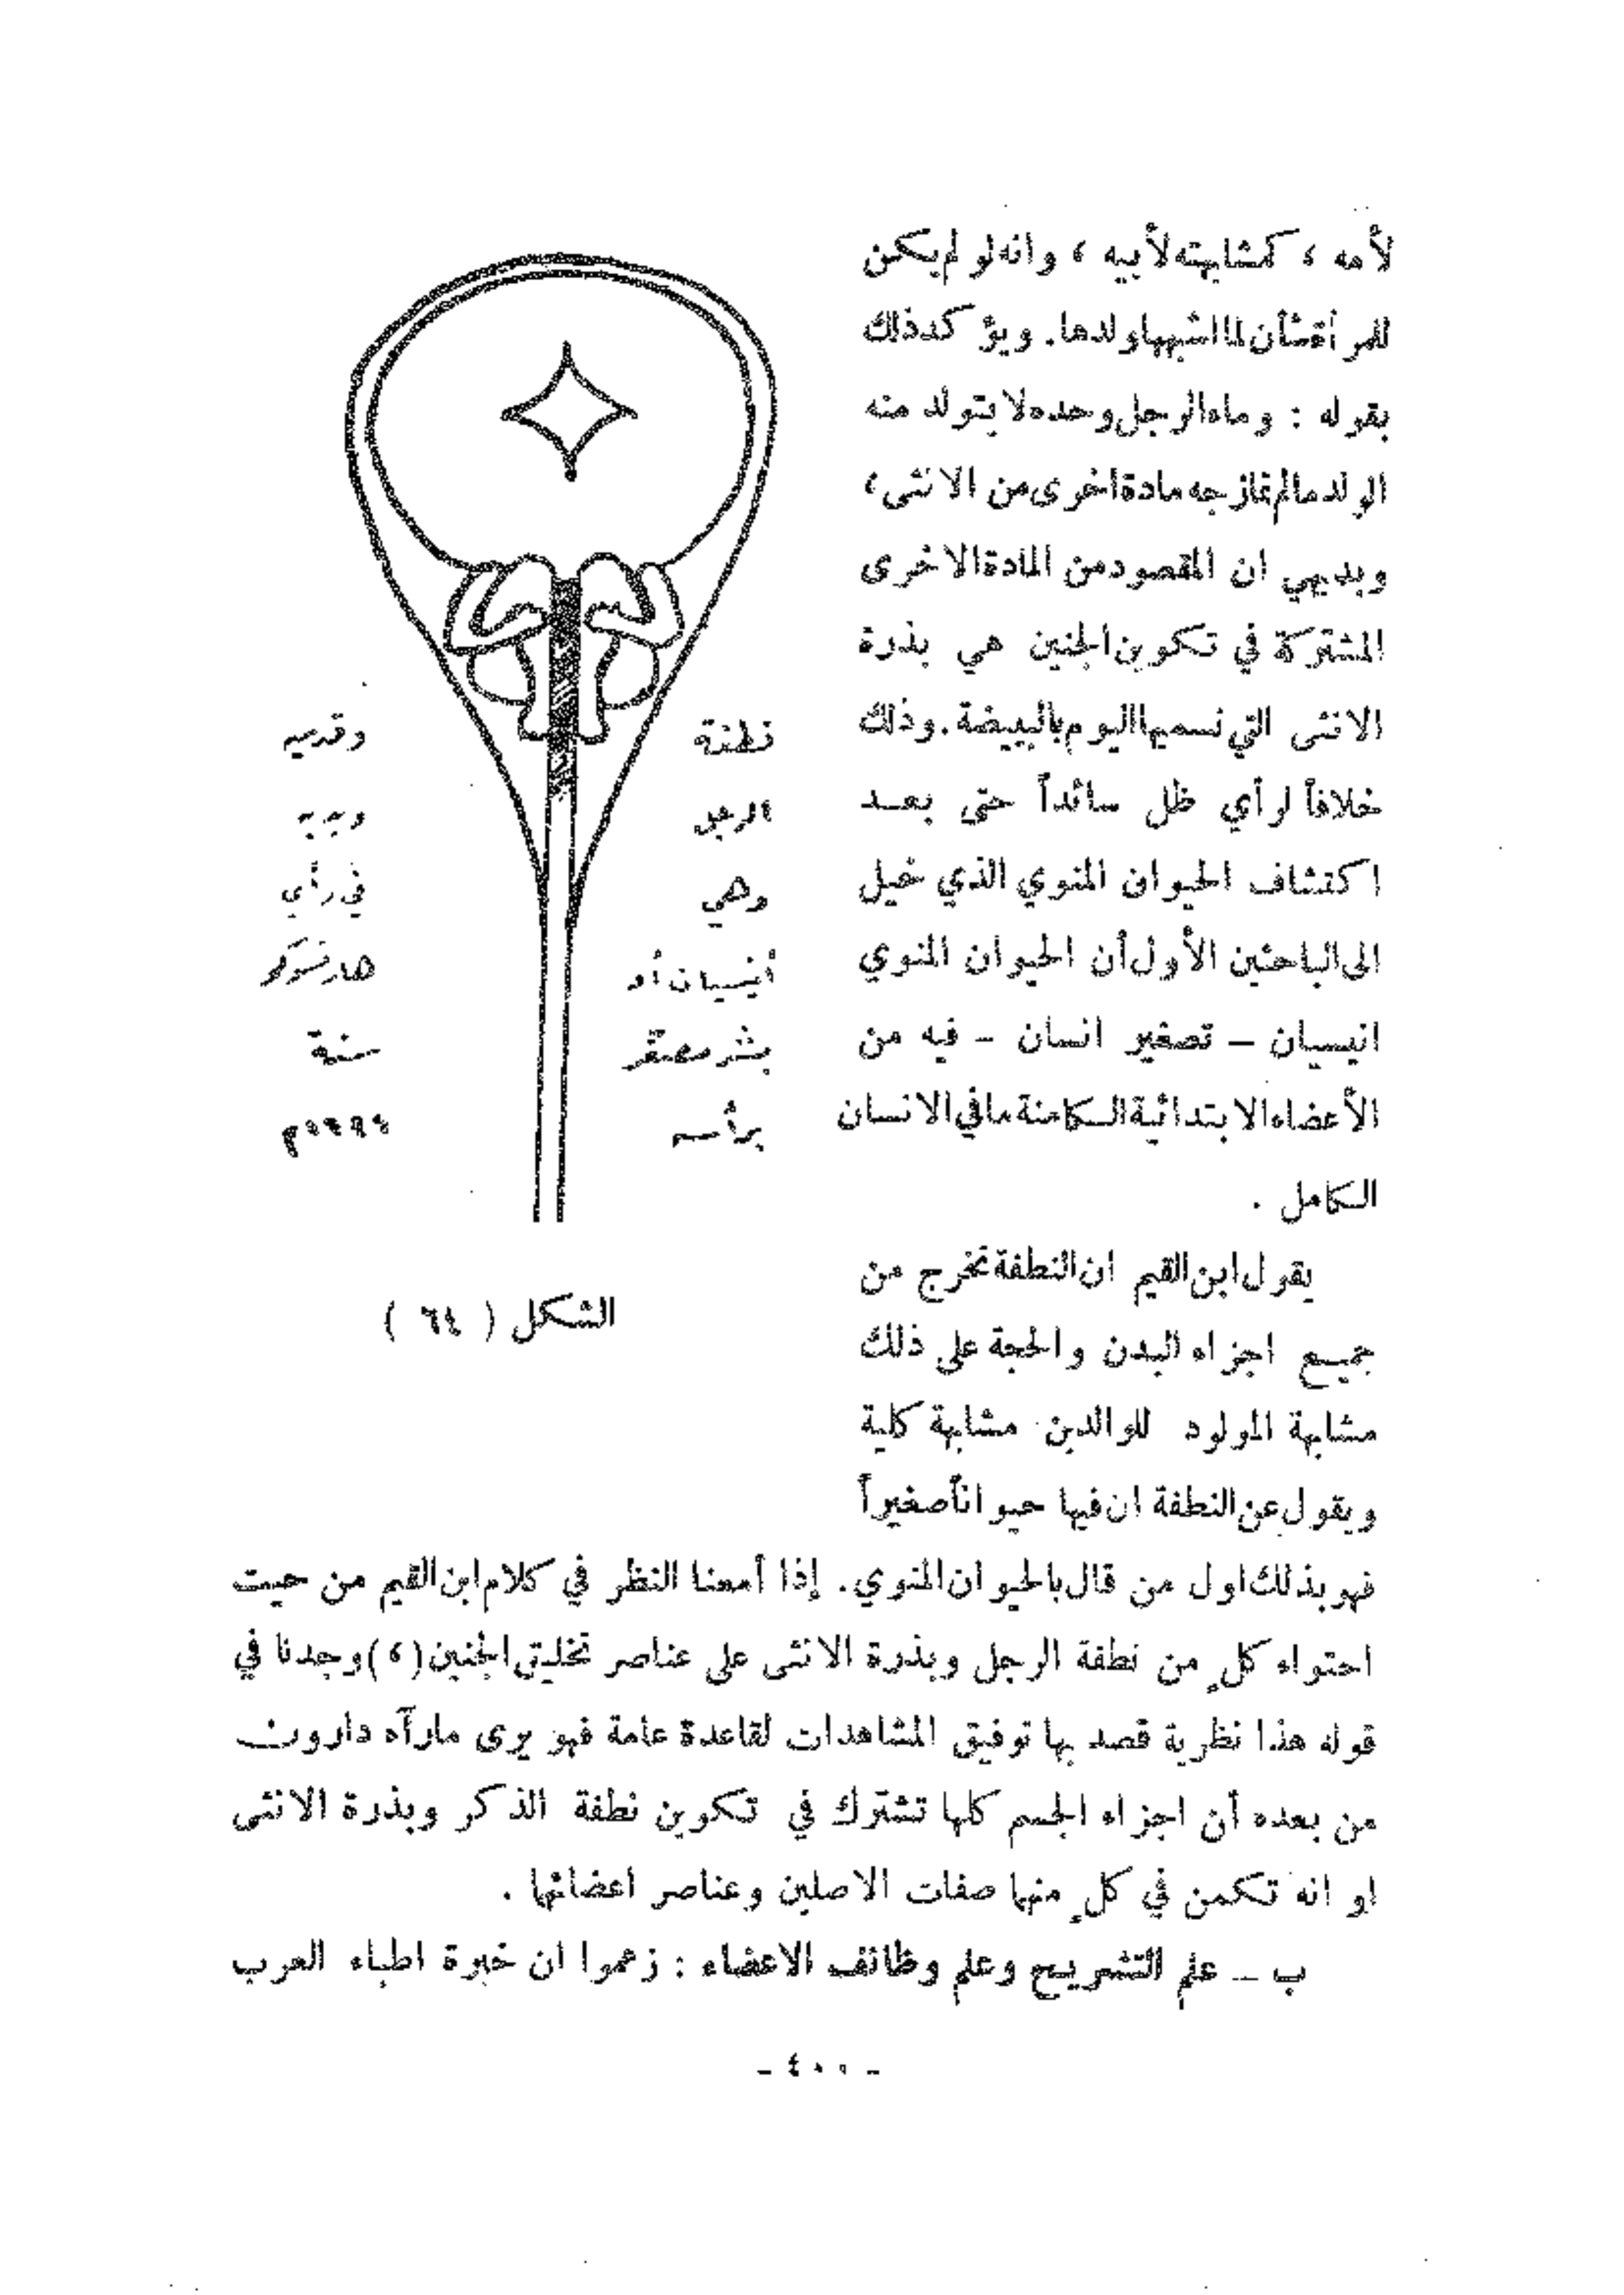 لأمه ، كمشابهته لأبيه ، وانه لو لم يكن
للمرأة شأن لما اشبهها ولدها. ويؤكد ذلك
بقوله : وماء الرجل وحده لا يتولد منه
الولد مالم تمازجه مادة اخرى من الانثى ،
وبديهي ان المقصود من المادة الاخرى
المشتركة في تكوين الجنين هي بذرة
الانثى التي نسميها اليوم بالبييضة . وذلك
خلافاً لرأي ظل سائداً حتى بعد
اكتشاف الحيوان المنوي الذي خيل
الى الباحثين الأول أن الحيوان المنوي
انيسيان – تصغير انسان – فيه من
الأعضاء الابتدائية الكامنة ما في الانسان
الكامل .
نطفة
الرجل
وهي
أنيسيان أو
بشر مصغر
برأسه
وقدميه
ويديه
في رأي
هارتسوكر
سنة
الشكل ( ٦٤ )
يقول ابن القيم ان النطفة تخرج من
جميع اجزاء البدن والحجة على ذلك
مشابهة المولود للوالدين مشابهة كلية
ويقول عن النطفة ان فيها حيواناً صغيراً
فهو بذلك اول من قال بالحيوان المنوي . إذا أمعنا النظر في كلام ابن القيم من حيث
احتواء كلٍ من نطفة الرجل وبذرة الانثى على عناصر تخليق الجنين (٤) وجدنا في
قوله هذا نظرية قصد بها توفيق المشاهدات لقاعدة عامة فهو يرى مارآه داروين
من بعده أن اجزاء الجسم كلها تشترك في تكوين نطفة الذكر وبذرة الانثى
او انه تكمن في كلٍ منها صفات الاصلين وعناصر اعضائها .
ب – علم التشريح وعلم وظائف الاعضاء : زعموا ان خبرة اطباء العرب
- ٤٠٠ -